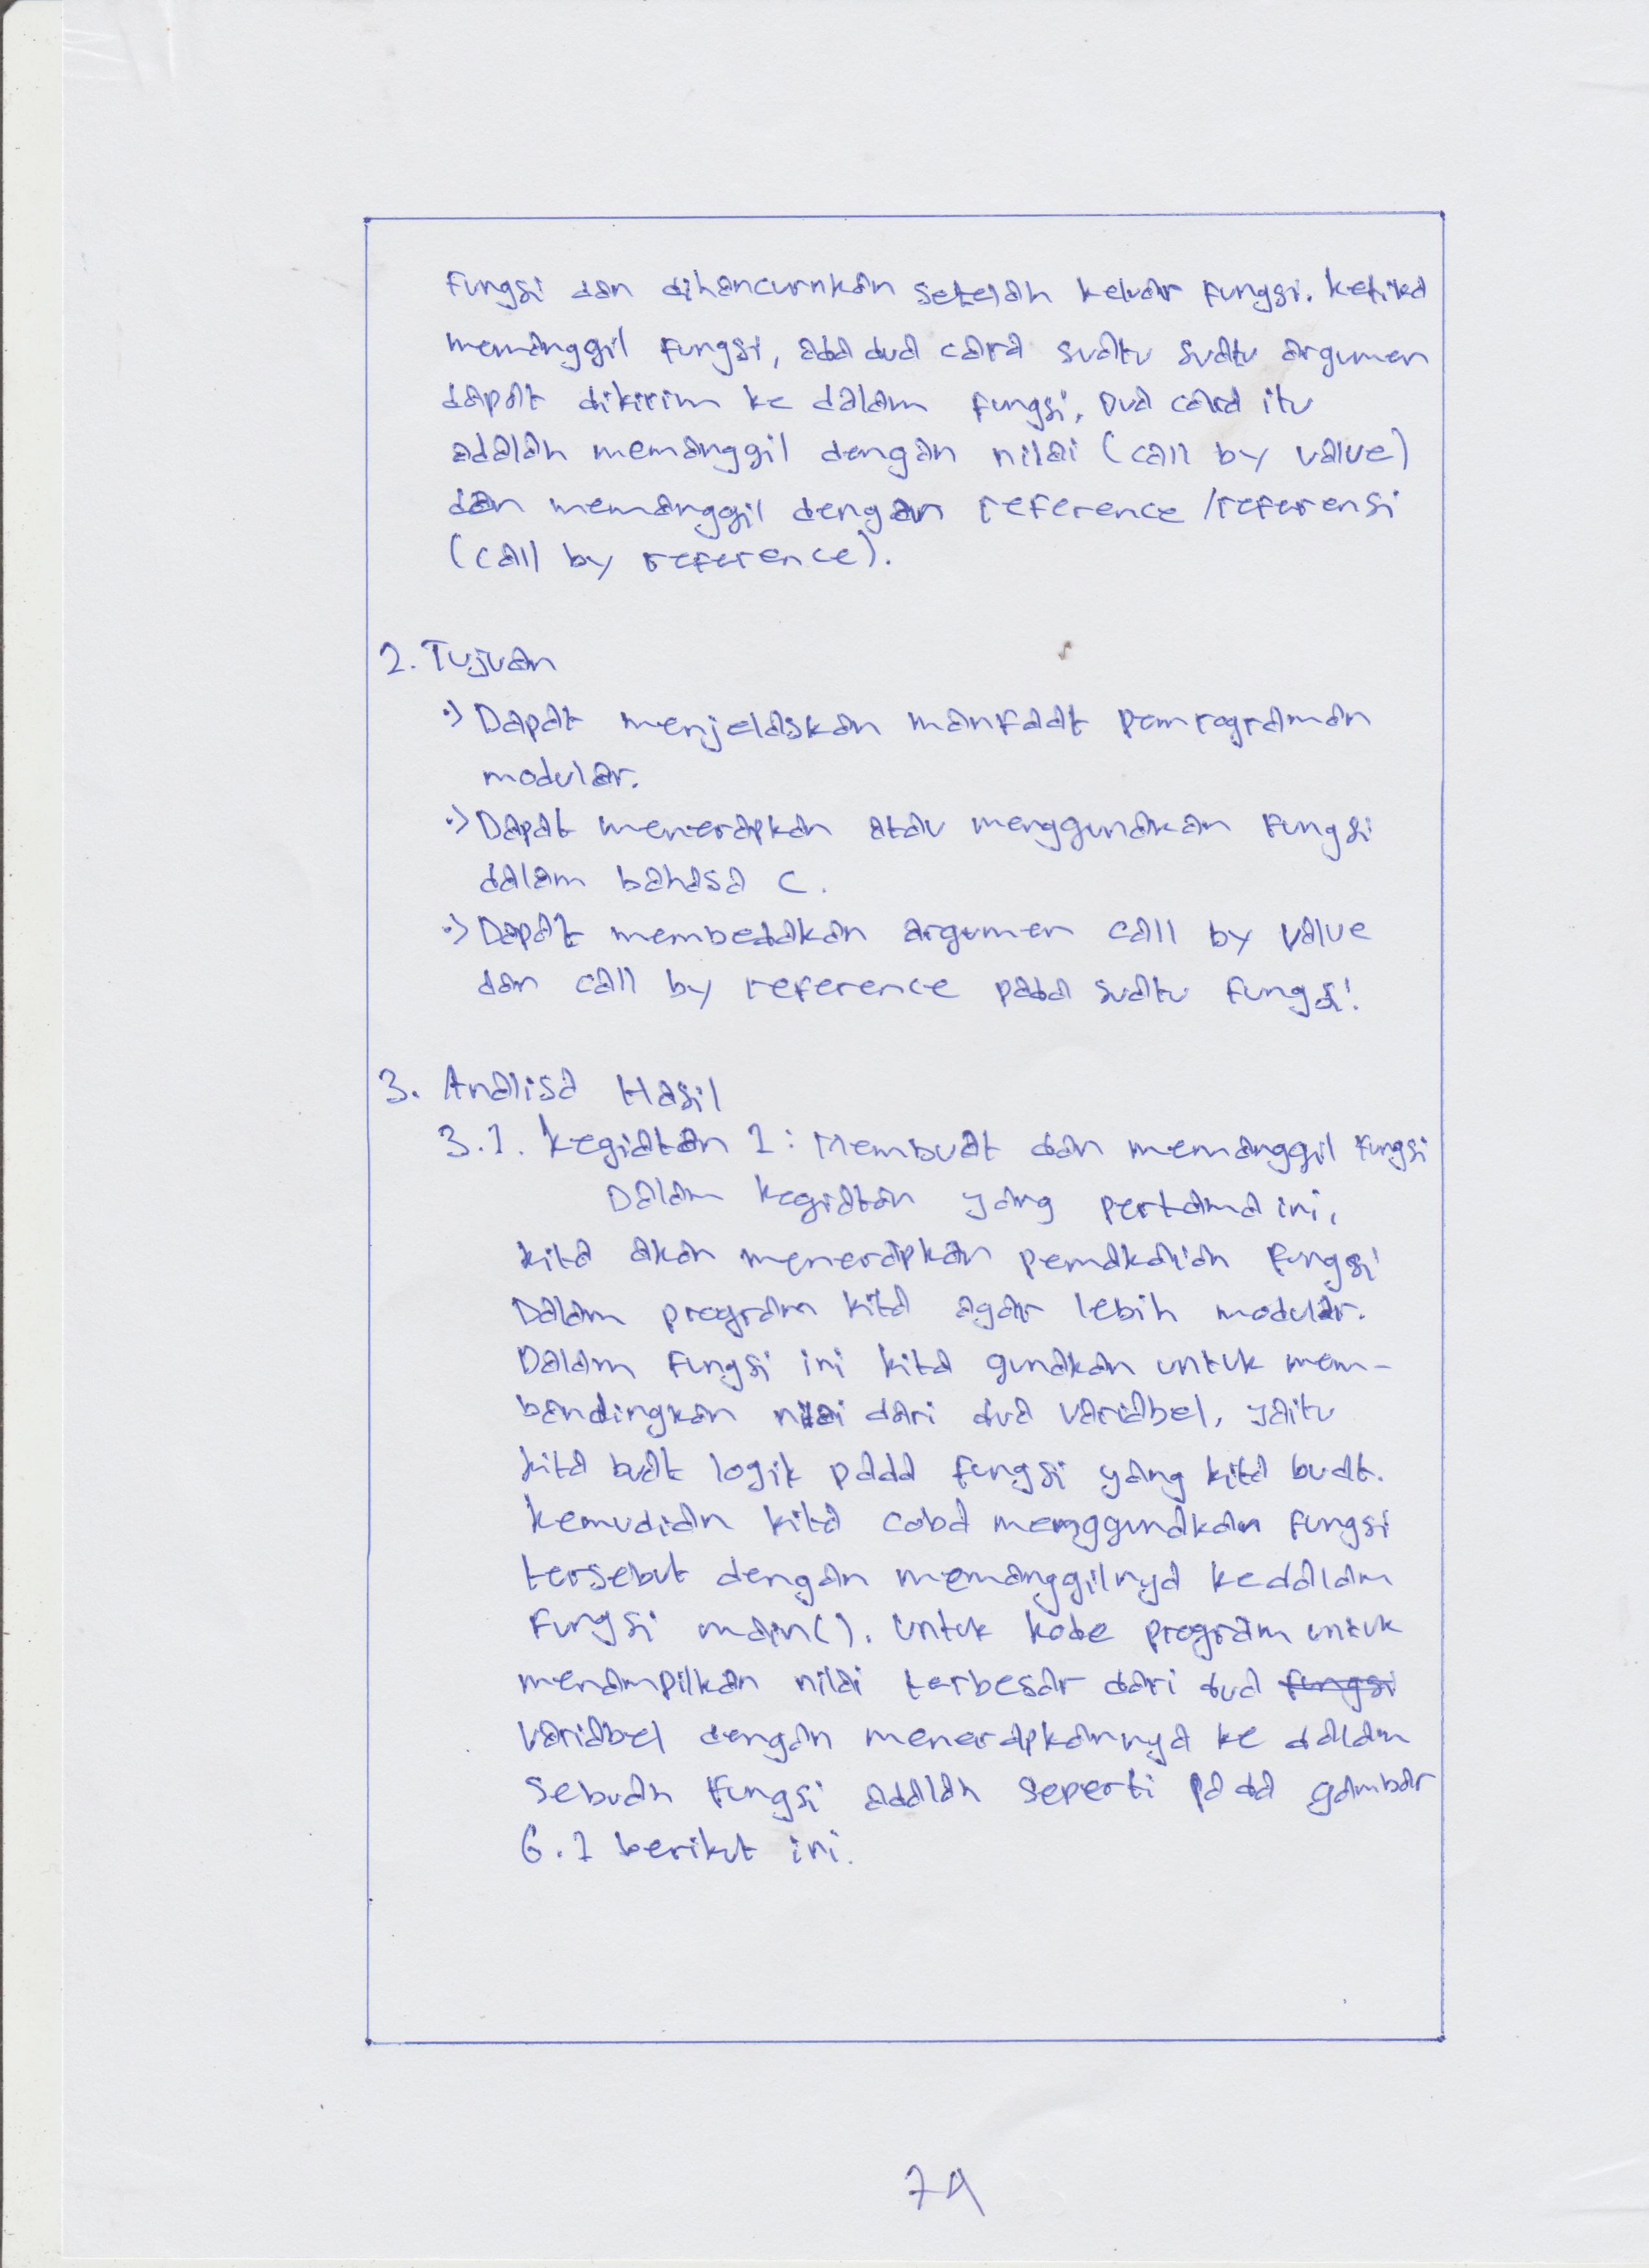 fungsi dan dihancurnkan setelah keluar fungsi. ketika
memanggil fungsi, ada dua cara suatu suatu argumen
dapat dikirim ke dalam fungsi. Dua cara itu
adalah memanggil dengan nilai (call by value)
dan memanggil dengan reference /referensi
(call by reference).
2. Tujuan
·> Dapat menjelaskan manfaat pemrograman
modular.
·> Dapat menerapkan atau menggunakan fungsi
dalam bahasa C.
·> Dapat membedakan argumen call by value
dan call by reference pada suatu fungsi!
3. Analisa Hasil
3.1. kegiatan 1 : Membuat dan memanggil fungsi
Dalam kegiatan yang pertama ini,
kita akan menerapkan pemakaian fungsi
Dalam program kita agar lebih modular.
Dalam fungsi ini kita gunakan untuk mem-
bandingkan nilai dari dua variabel, yaitu
kita buat logik pada fungsi yang kita buat.
kemudian kita coba menggunakan fungsi
tersebut dengan memanggilnya kedalam
fungsi main(). Untuk kode program untuk
menampilkan nilai terbesar dari dua fungsi
variabel dengan menerapkannya ke dalam
sebuah fungsi adalah seperti pada gambar
6.1 berikut ini.
74